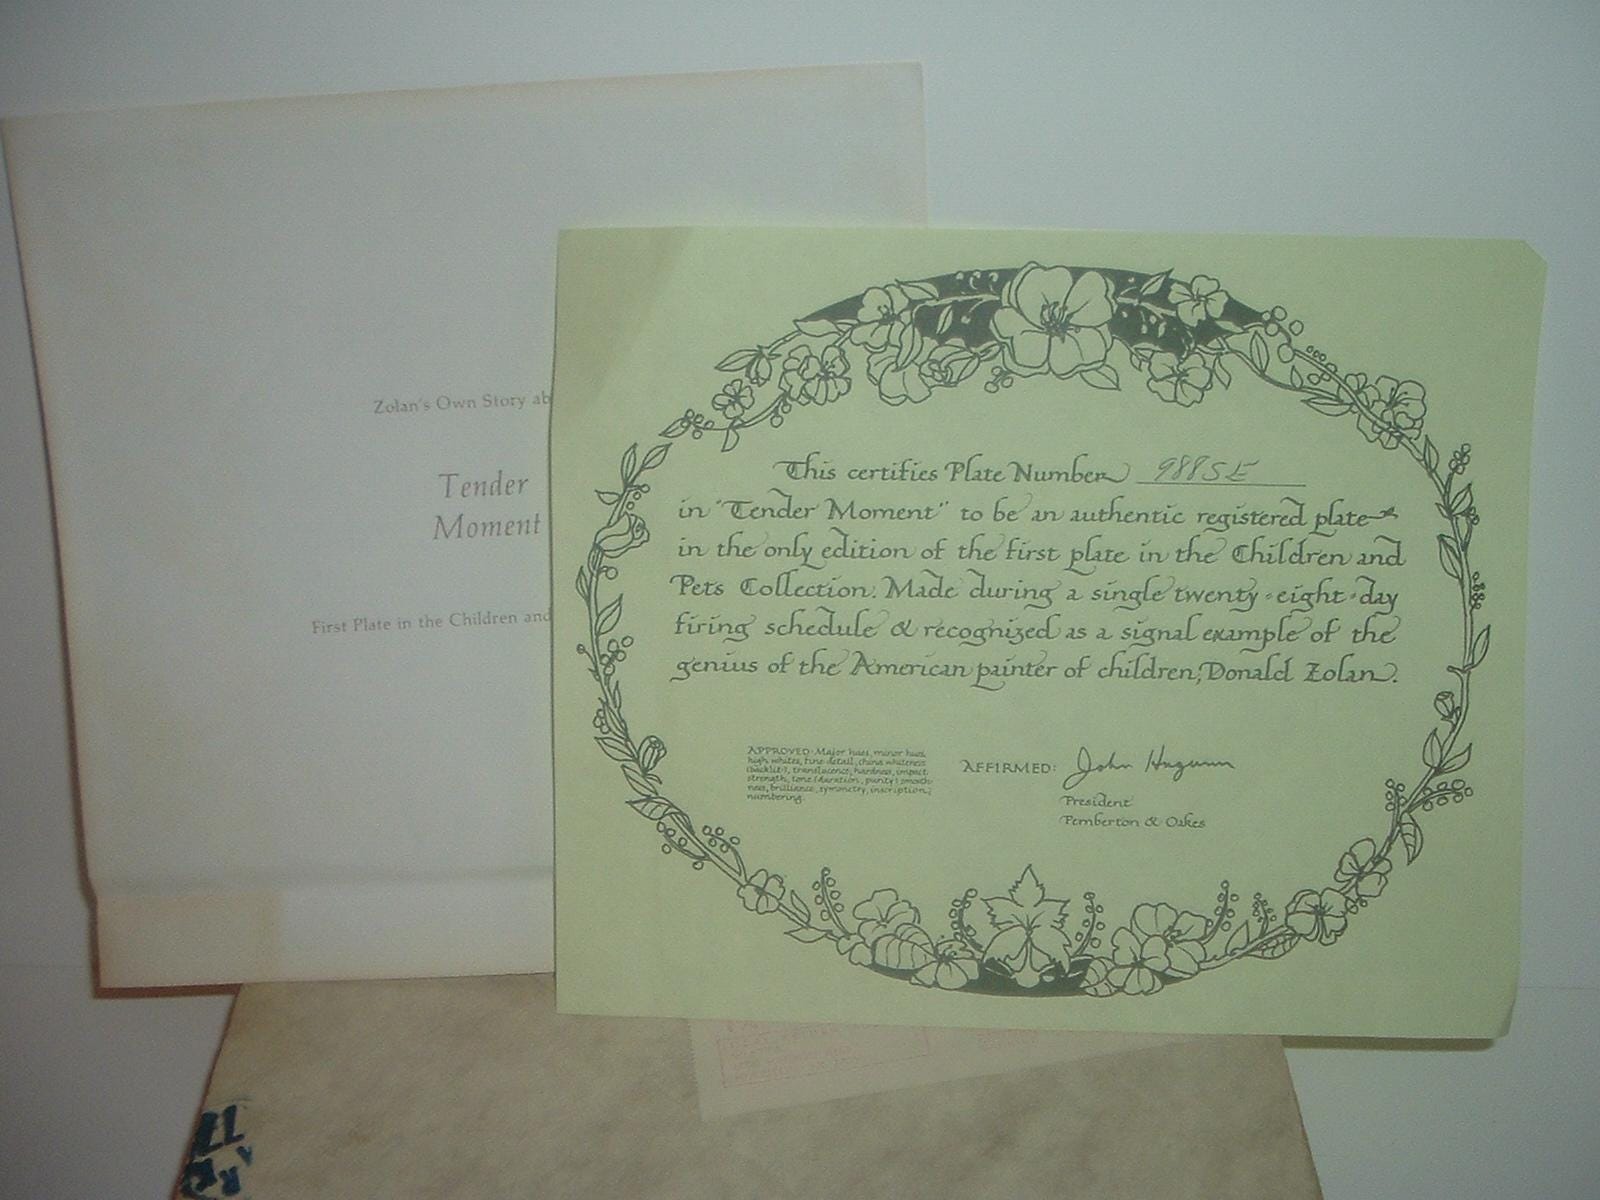 Zolan's Own Story ab
Tender
Moment
First Plate in the Children and
This certifies Plate Number 9885E
in "Tender Moment" to be an authentic registered plate
in the only edition of the first plate in the Children and
Pets Collection. Made during a single twenty-eight-day
firing schedule & recognized as a signal example of the
genius of the American painter of children, Donald Zolan.
APPROVED: Major hues, minor hues,
high whites, fine detail, china whiteness
(backlit), translucence, hardness, impact
strength, tone (duration, purity) smooth-
ness, brilliance, symmetry, inscription,
numbering.
AFFIRMED: John Hugunin
President
Pemberton & Oakes